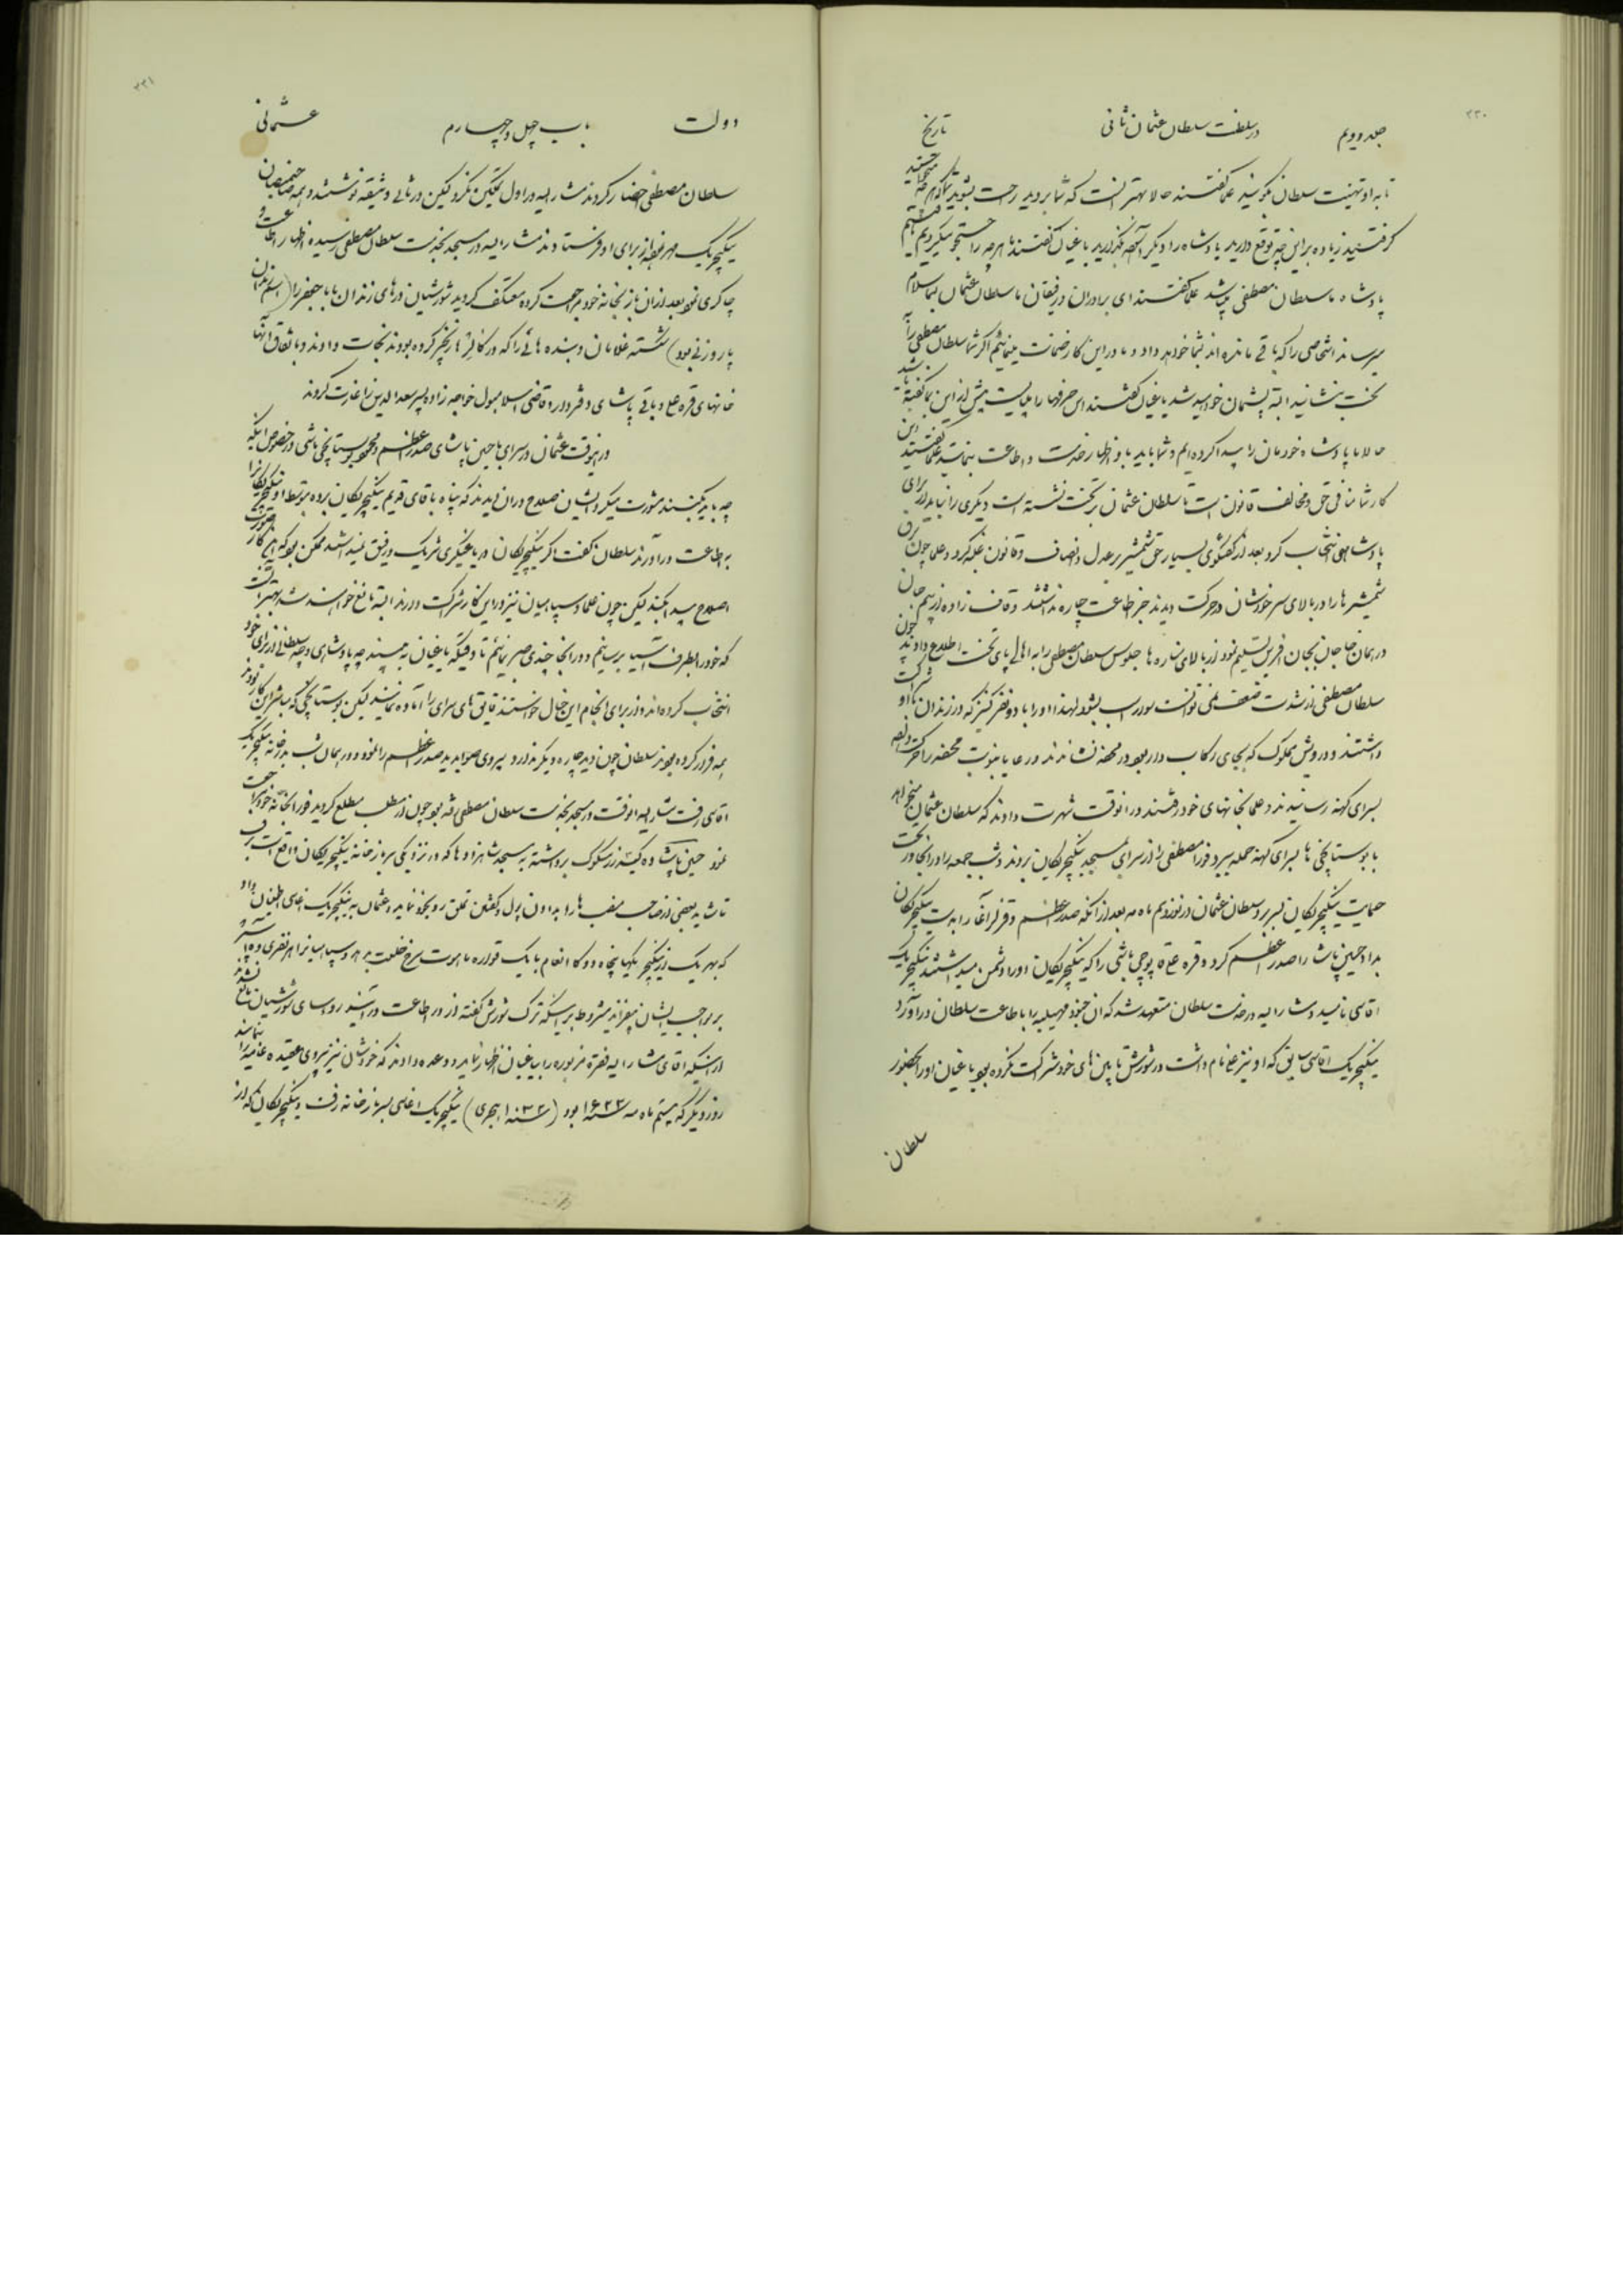 ۲۳۰
جلد دویم
در سلطنت سلطان عثمان ثانی
تاریخ
تا به او تهنیت سلطان بگویند علما گفتند حالا بهتر آنست که شما بروید راحت بشوید هرچه میخواستید
گرفتید زیاده بر این چه توقع دارید پادشاه را دیگر غصه نگذارید باغیان گفتند ما هرچه را جستجو میکردیم یافتیم
پادشاه ما سلطان مصطفی میباشد علما گفتند ای برادران و رفیقان ما سلطان عثمان بشما سلام
میرساند اشخاصی را که باقی مانده اند بشما خواهد داد و ما در این کار ضمانت مینمائیم اگر شما سلطان مصطفی را
بتخت بنشانید البته پشمان خواهید شد باغیان گفتند این حرفها را میبایست پیش از این بما گفته باشید
حالا ما پادشاه خودمان را پیدا کرده ایم و شما باید باو اظهار خدمت و اطاعت بنمائید علما گفتند این
کار شما منافی حق و مخالف قانون است تا سلطان عثمان بر تخت نشسته است دیگری را نباید از برای
پادشاهی انتخاب کرد بعد از گفتگوی بسیار حق شمشیر بر عدل و انصاف و قانون غلبه کرد و علما چون برق
شمشیرها را در بالای سر خودشان در حرکت دیدند جز اطاعت چاره نداشتند و قاف زاده از بیم جان
در همان جا جان بجان آفرین تسلیم نمود از بالای مناره ها جلوس سلطان مصطفی را به اهالی پای تخت اطلاع دادند چون
سلطان مصطفی از شدت ضعف نمی توانست سوار اسب بشود لهذا او را با دو نفر کنیز که در زندان با او شراکت
داشتند و درویش مملوک که بجای رکاب دار بود در محفه نشاندند و رعایا بنوبت محفه را حرکت داده
بسرای کهنه رسانیدند و علما بخانهای خود رفتند در انوقت شهرت دادند که سلطان عثمان میخواهد
با بوستانچی ها بسرای کهنه حمله ببرد فوراً مصطفی را از سرای بمسجد ینگیچریکان بردند و شب جمعه را در آنجا در تحت
حمایت ینگیچریکان بسر برد سلطان عثمان در نوزدهم ماه مه بعد از آنکه صدر اعظم و قزلر آغا را بدست ینگیچریکان
بداد حسین پاشا را صدر اعظم کرد و قره علی قاپوچی باشی را که ینگیچریکان او را دشمن میداشتند ینگیچریک
آقاسی نامید و مشارالیه در خدمت سلطان متعهد شد که آن جنود مهیبه را باطاعت سلطان درآورد
ینگیچریک آقاسی سابق که او نیز علی نام داشت در شورش تابین های خود شرکت نکرده بود باغیان او را بحضور
سلطان
۲۳۱
دولت
باب چهل و چهارم
عثمانی
سلطان مصطفی احضار کردند مشارالیه در اول تمکین نکرد لیکن در ثانی وثیقه نوشتند و همه صاحب منصبان
ینگیچریک مهر نموده از برای او فرستادند مشارالیه در مسجد بخدمت سلطان مصطفی رسیده اظهار اطاعت و
چاکری نمود بعد از آن باز بخانه خود مراجعت کرده معتکف گردید شورشیان درهای زندان بابا جعفر را (اسم زندان
پاروزنی بود) شکسته غلامان و بنده هائی را که در کالرها زنجیر کرده بودند نجات دادند و باتفاق آنها
خانهای قره علی و باقی پاشای دفتردار و قاضی اسلامبول خواجه زاده پسر سعدالدین را غارت کردند
در اینوقت عثمان در سرای با حسین پاشای صدر اعظم و محمود بوستانچی باشی در خصوص اینکه
چه باید بکنند مشورت میکرد ایشان صلاح در آن دیدند که پناه باقای قدیم ینگیچریکان برده بتوسط او ینگیچریکان را
به اطاعت درآورند سلطان گفت اگر ینگیچریکان در یاغیگری شریک و رفیق نمیداشتند ممکن بود که این کار صورت
اصلاح پیدا بکند لیکن چون علما و سپاهیان نیز در این کار شرکت دارند البته مانع خواهند شد بهتر آنست
که خود را بطرف آسیا برسانیم و در آنجا چندی صبر نمائیم تا وقتیکه باغیان ببینند چه پادشاهی و چه سلطانی از برای خود
انتخاب کرده اند و از برای انجام این خیال خواستند قایق های سرای را آماده نمایند لیکن بوستانچی که مباشر این کار بودند
همه فرار کرده بودند سلطان چون دید چاره دیگر ندارد پیروی صوابدید صدر اعظم را نمود و در همان شب بدرخانه ینگیچریک
آقاسی رفت مشارالیه آنوقت در مسجد بخدمت سلطان مصطفی
نمود حسین پاشا ده کیسه زر مسکوک برداشته به مسجد شاهزاده ها که در نزدیکی سربازخانه ینگیچریکان واقع است برفت
تا شاید بعضی از صاحب منصب ها را به دادن پول و گفتن تملق رو بخود نماید و عثمان به ینگیچریک آغاسی اطمینان داد
که بهر یک از ینگیچریکها پنجاه دوکا انعام با یک قواره ماهوت سرخ خلعت بدهد و سپاهیان را هر نفری
بر مواجب ایشان بیفزاید مشروط بر اینکه ترک شورش گفته از در اطاعت درآیند رؤسای شورشیان مانع نشدند
از اینکه آقای مشارالیه فقره مزبوره را بباغیان اظهار نماید و وعده دادند که خودشان نیز پیروی عقیده عامه را بنمایند
روز دیگر که بیستم ماه مه سنه ۱۶۲۲ بود (سنه ۱۰۳۲ هجری) ینگیچریک آغاسی بسربازخانه رفت و ینگیچریکان که از